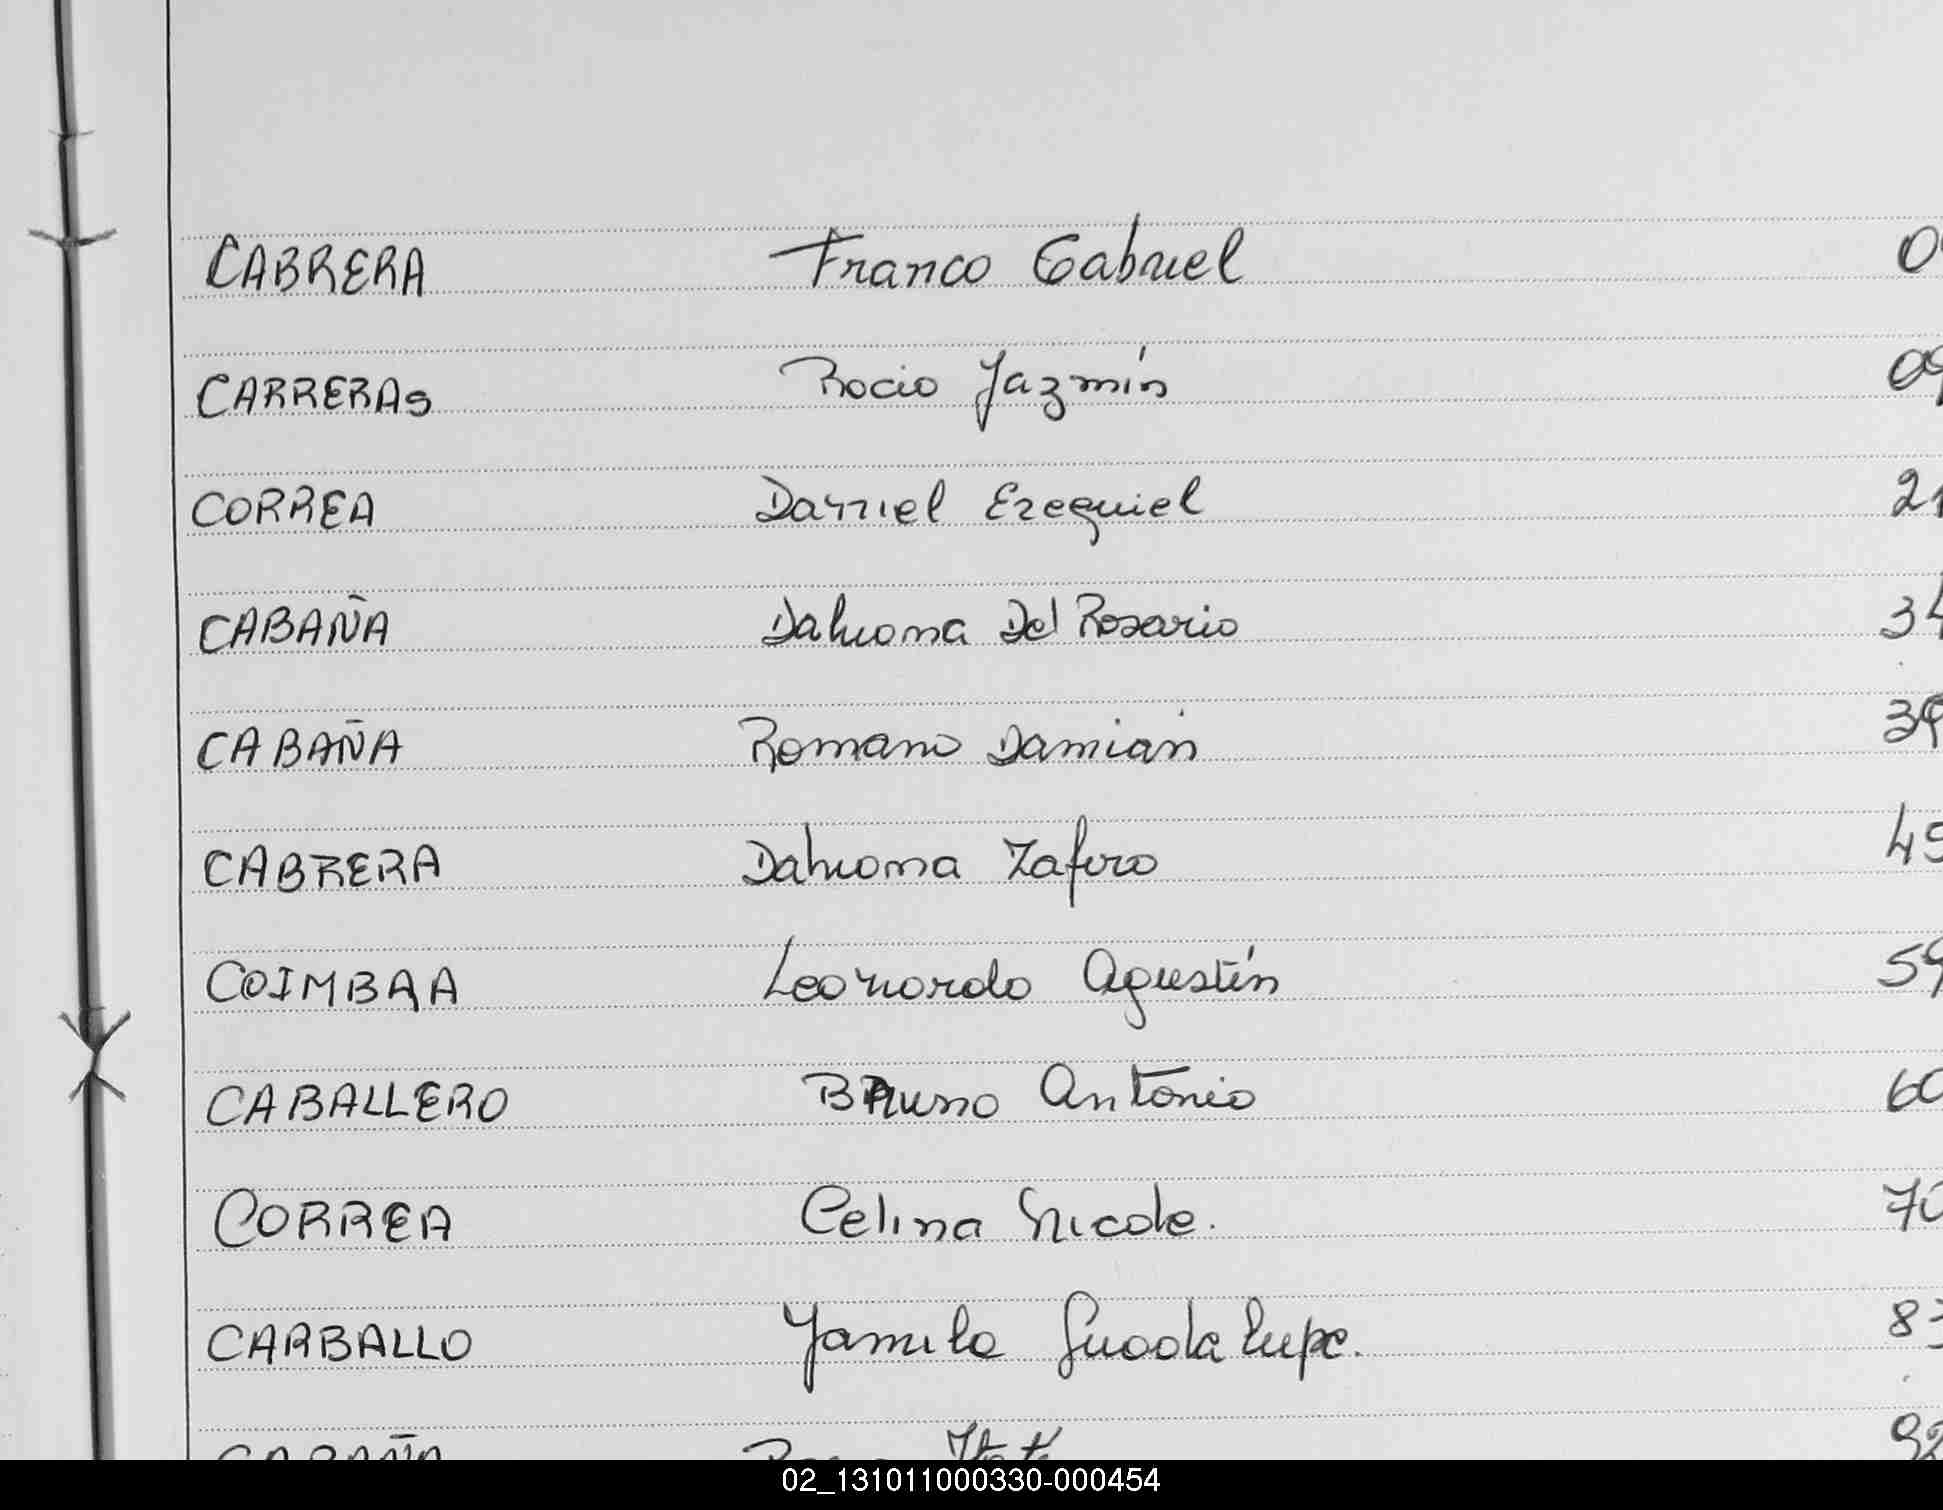 CABRERA Franco Gabriel 0
CARRERAS Rocio Jazmín 09
CORREA Daniel Ezequiel 21
CABAÑA Dahiana Del Rosario 34
CABAÑA Romano Damián 39
CABRERA Dahiana Zafiro 49
COIMBRA Leonardo Agustín 59
CABALLERO Bruno Antonio 60
CORREA Celina Nicole. 70
CARBALLO Yamila Guadalupe. 83
CABAÑA 92
02_131011000330-000454